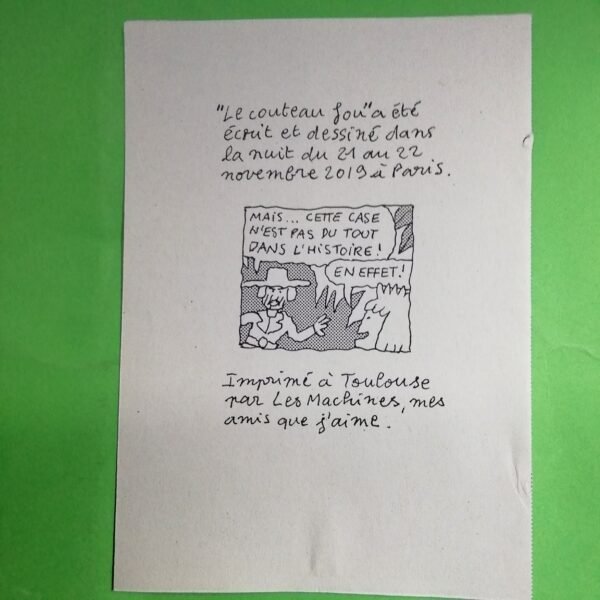 "Le couteau fou" a été
écrit et dessiné dans
la nuit du 21 au 22
novembre 2019 à Paris.
MAIS... CETTE CASE
N'EST PAS DU TOUT
DANS L'HISTOIRE!
EN EFFET!
Imprimé à Toulouse
par Les Machines, mes
amis que j'aime.